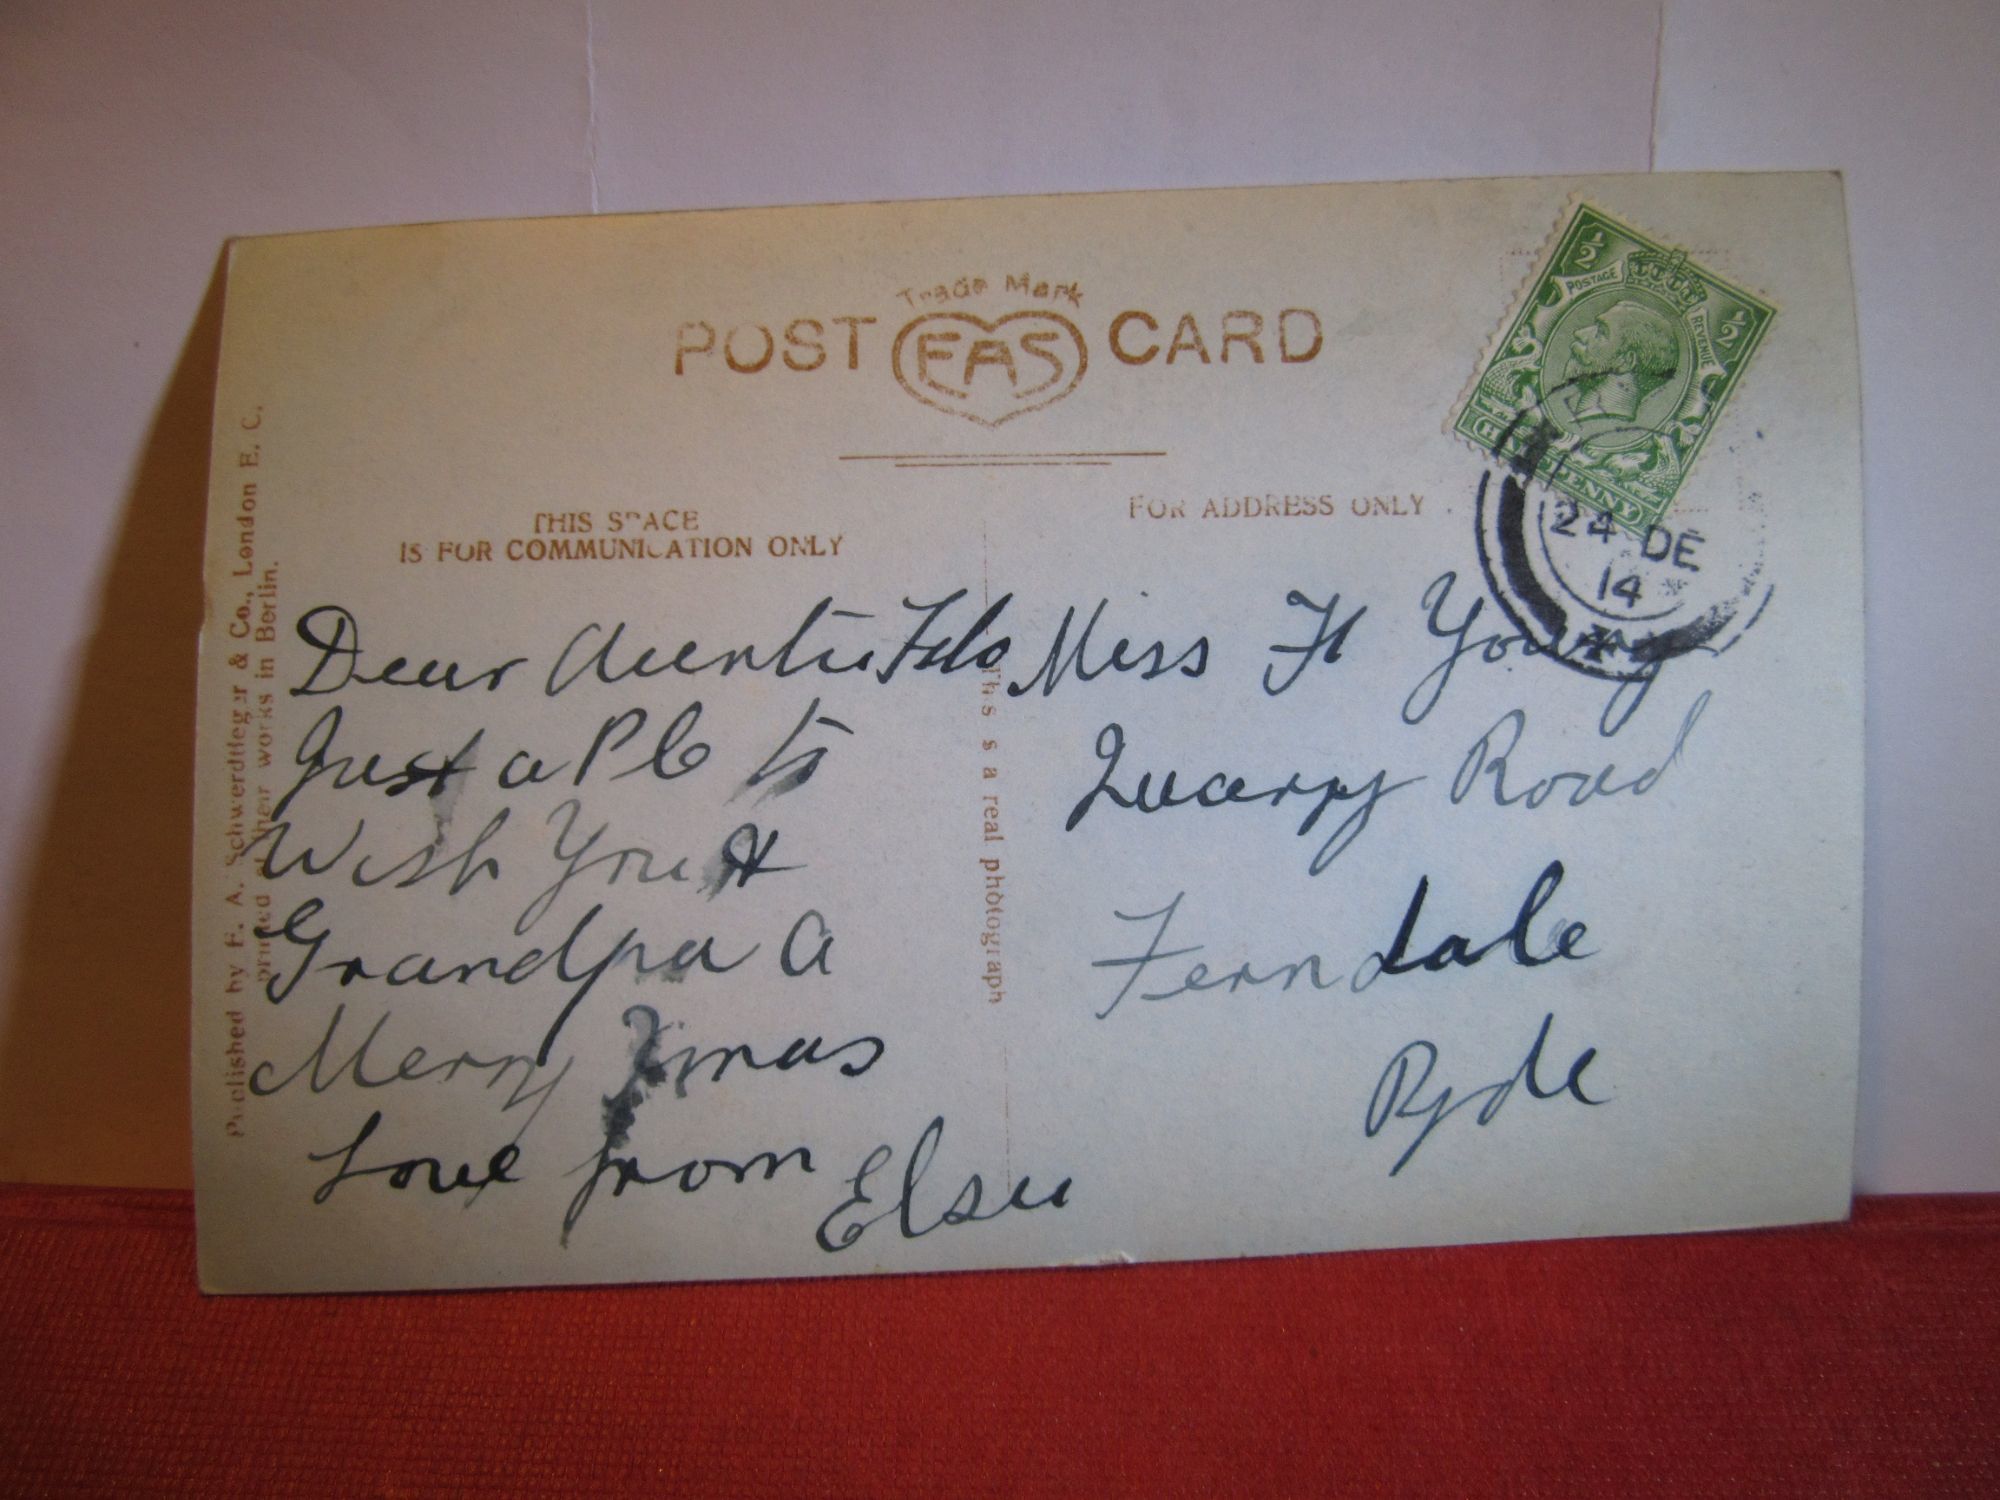 Trade Mark
POST EAS CARD
THIS SPACE
IS FOR COMMUNICATION ONLY
FOR ADDRESS ONLY
½ POSTAGE REVENUE ½
HALFPENNY
24 DE
14
Published by E. A. Schwerdtfeger & Co., London E. C.
printed at their works in Berlin.
This is a real photograph
Dear Auntie Flo
Just a PC to
Wish You &
Grandpa A
Merry Xmas
Love from
Elsie
Miss F Young
Quarry Road
Ferndale
Ryde